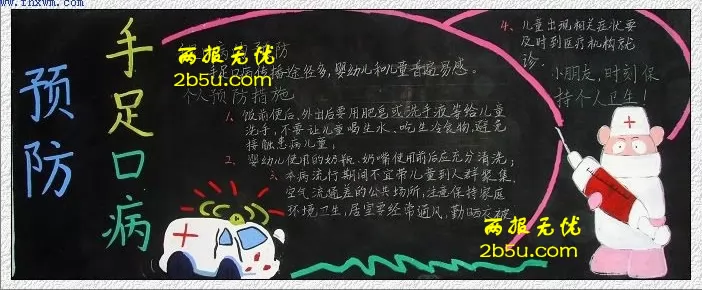 www.fnxwm.com
预防
手足口病
两报无优
2b5u.com
预防
手足口病传播途径多，婴幼儿和儿童普遍易感。
个人预防措施
1、饭前便后、外出后要用肥皂或洗手液等给儿童
洗手，不要让儿童喝生水、吃生冷食物，避免
接触患病儿童；
2、婴幼儿使用的奶瓶、奶嘴使用前后应充分清洗；
3、本病流行期间不宜带儿童到人群聚集，
空气流通差的公共场所，注意保持家庭
环境卫生，居室要经常通风，勤晒衣被
4、儿童出现相关症状要
及时到医疗机构就
诊.
小朋友，时刻保
持个人卫生！
两报无优
2b5u.com